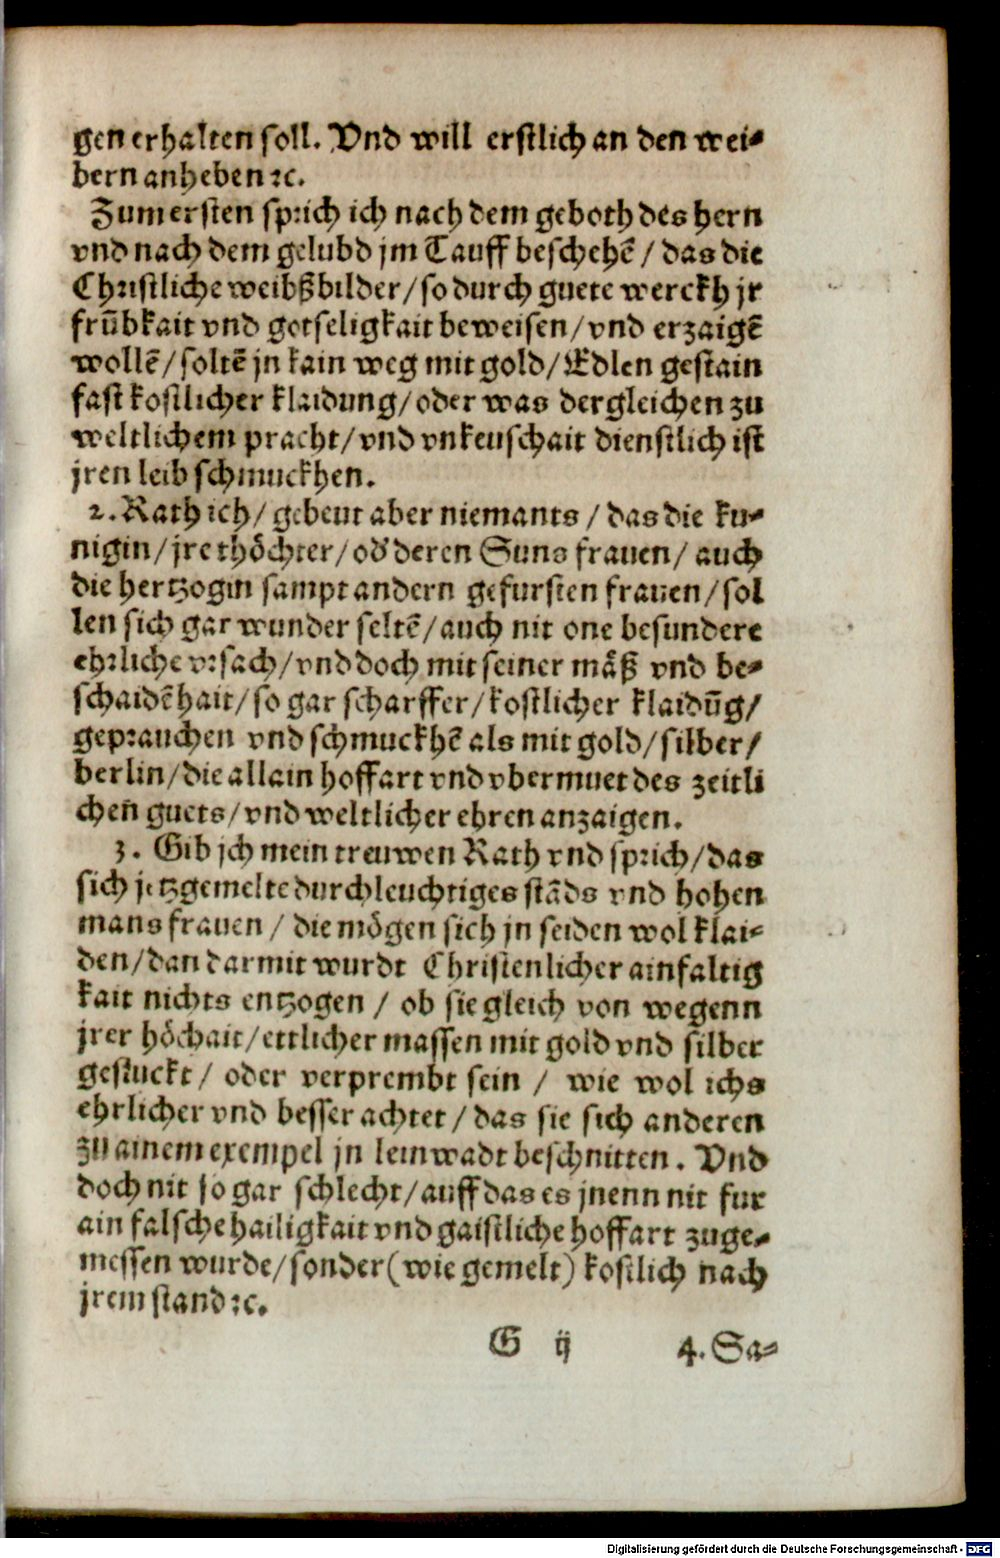 gen erhalten soll. Vnd will erstlich an den wei⸗
bern anheben ꝛc.
Zum ersten sprich ich nach dem geboth des hern
vnd nach dem gelubd jm Tauff beschehẽ / das die
Christliche weibßbilder / so durch guete werckh jr
frũbkait vnd gotseligkait beweisen / vnd erzaigẽ
wollẽ / soltẽ jn kain weg mit gold / Edlen gestain
fast kostlicher klaidung / oder was dergleichen zu
weltlichem pracht / vnd vnkeuschait dienstlich ist
jren leib schmuckhen.
2. Rath ich / gebeut aber niemants / das die ku⸗
nigin / jre thöchter / od' deren Suns frauen / auch
die hertzogin sampt andern gefursten frauen / sol
len sich gar wunder seltẽ / auch nit one besundere
ehrliche vrsach / vnd doch mit seiner mäß vnd be⸗
schaidẽhait / so gar scharffer / kostlicher klaidũg /
geprauchen vnd schmuckhẽ als mit gold / silber /
berlin / die allain hoffart vnd vbermuet des zeitli
chen guets / vnd weltlicher ehren anzaigen.
3. Gib jch mein treuwen Rath vnd sprich / das
sich jetzgemelte durchleuchtiges stãds vnd hohen
mans frauen / die mögen sich jn seiden wol klai⸗
den / dan darmit wurdt Christenlicher ainfaltig
kait nichts entzogen / ob sie gleich von wegenn
jrer höchait / ettlicher massen mit gold vnd silber
gestuckt / oder verprembt sein / wie wol ichs
ehrlicher vnd besser achtet / das sie sich anderen
zu ainem exempel jn leinwadt beschnitten. Vnd
doch nit so gar schlecht / auff das es jnenn nit fur
ain falsche hailigkait vnd gaistliche hoffart zuge⸗
messen wurde / sonder (wie gemelt) kostlich nach
jrem stand ꝛc.
G ij 4. Sa⸗
Digitalisierung gefördert durch die Deutsche Forschungsgemeinschaft - DFG